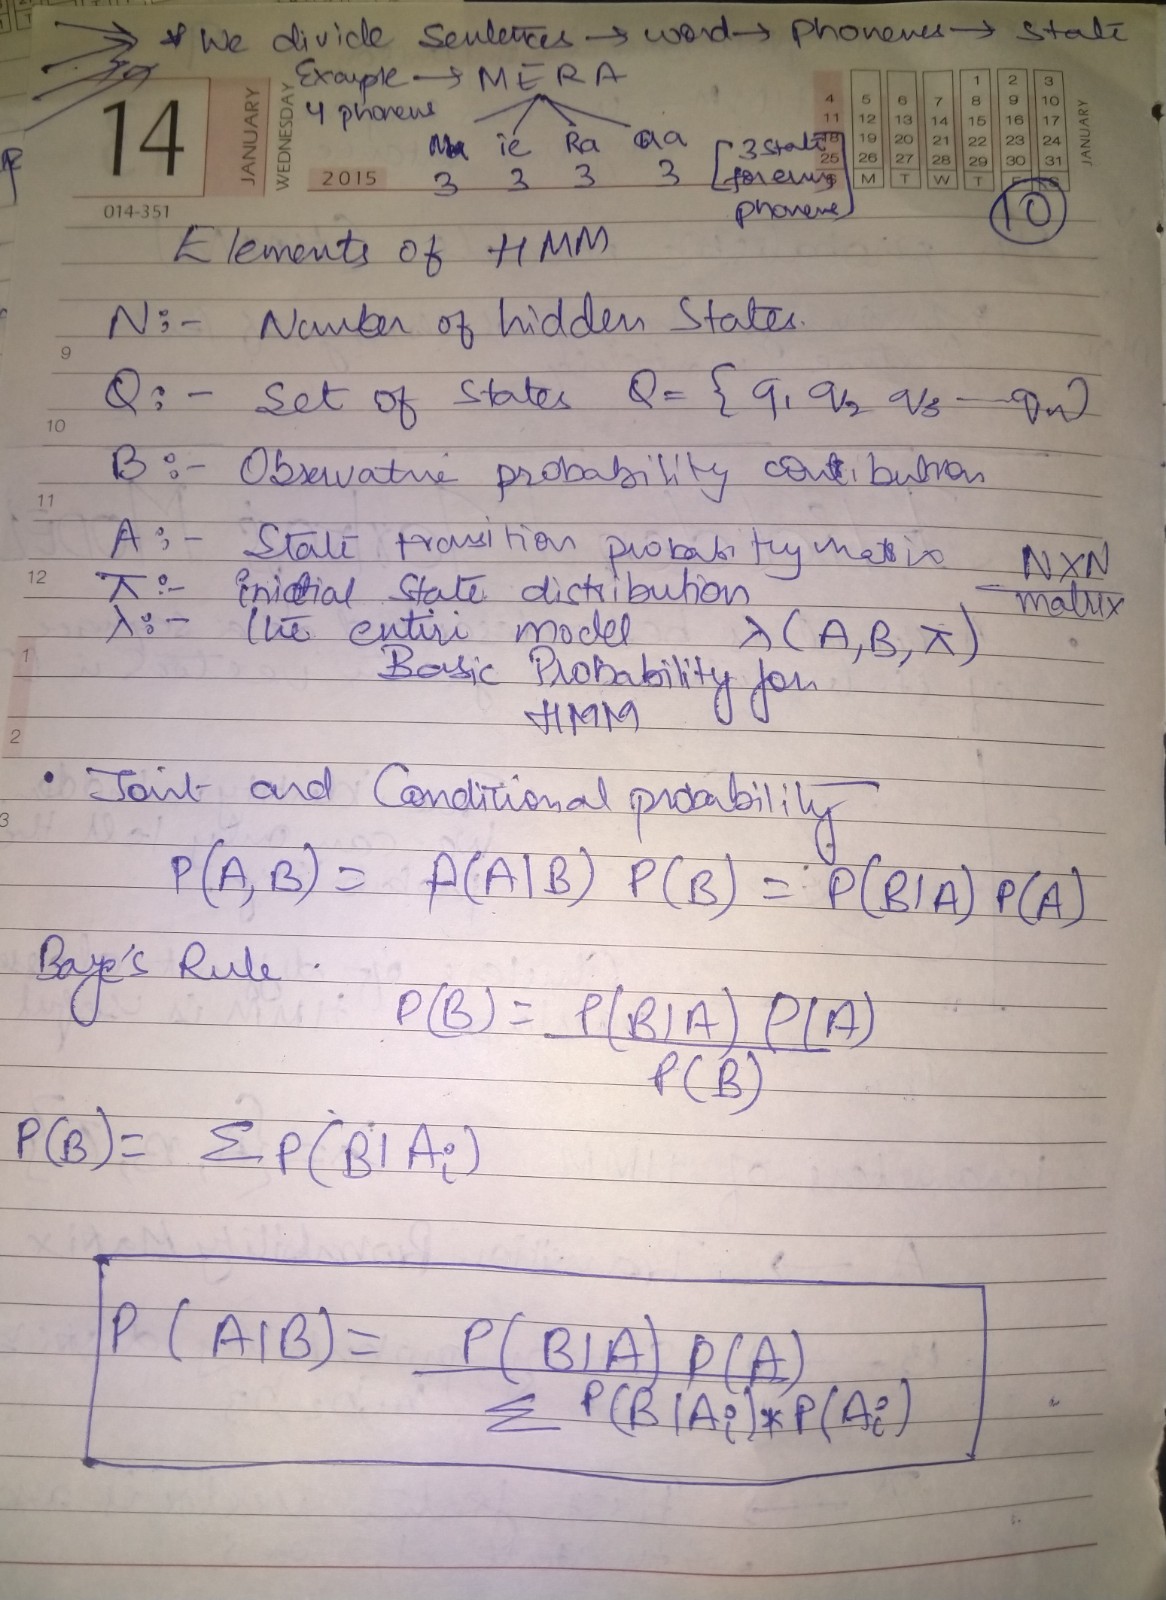 * We divide Sentences → word → Phonemes → State
Example → MERA
4 phonems
ie Ra aa
3 3 3 3
[3 State for every phoneme]
14
JANUARY
WEDNESDAY
2015
014-351
1 2 3
4 5 6 7 8 9 10
11 12 13 14 15 16 17
18 19 20 21 22 23 24
25 26 27 28 29 30 31
S M T W T F S
JANUARY
10
Elements of HMM
N:- Number of hidden States.
9
Q:- Set of States Q = { q1 q2 q3 — qn}
10
B:- Observative probability contibution
11
A:- State transition probability matrix — NXN matrix
12
π:- Initial State distribution
λ:- the entire model λ(A,B,π)
1
Basic Probability for
HMM
2
• Joint and Conditional probability
3
P(A,B) = P(A|B) P(B) = P(B|A) P(A)
Baye's Rule .
P(B) = P(B|A) P(A)
P(B)
P(B) = Σ P(B|Ai)
P(A|B) = P(B|A) P(A)
Σ P(B|Ai)*P(Ai)